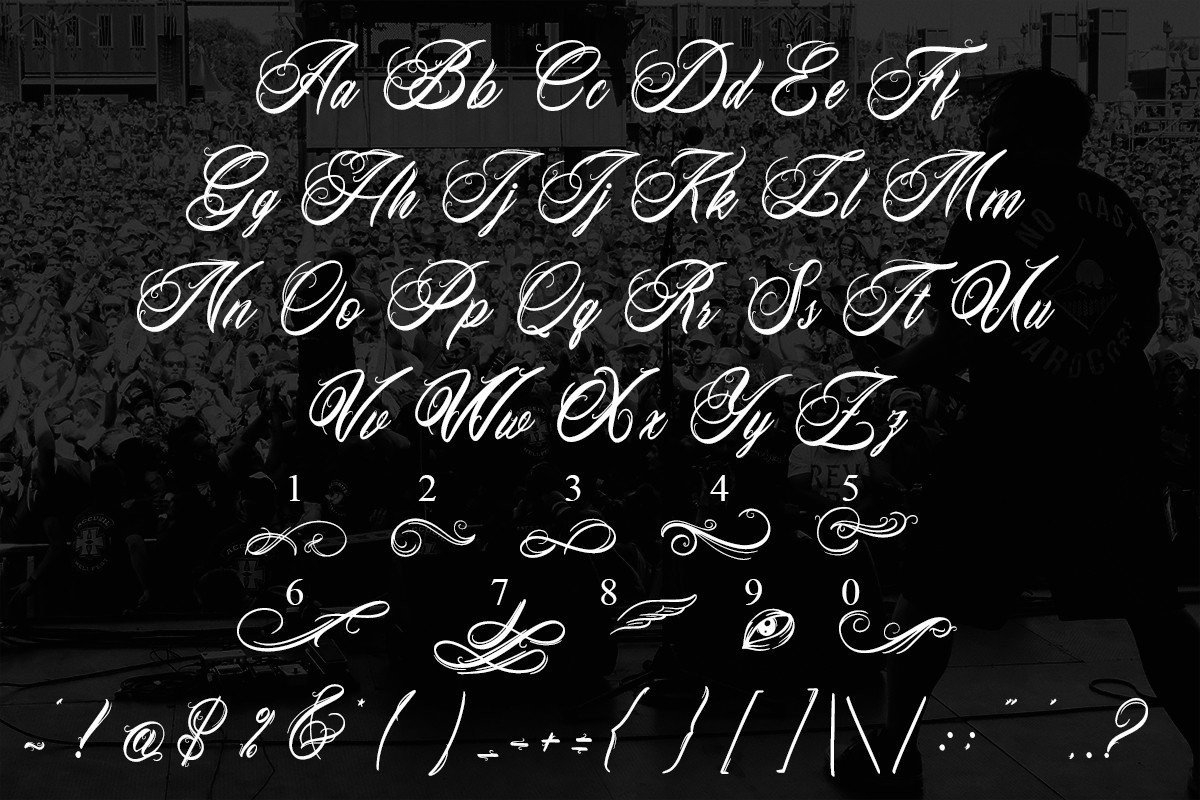 Aa Bb Cc Dd Ee Ff
Gg Hh Ii Jj Kk Ll Mm
Nn Oo Pp Qq Rr Ss Tt Uu
Vv Ww Xx Yy Zz
1 2 3 4 5
6 7 8 9 0
~ ` ! @ $ % & * ( ) _ - + = { } [ ] | \ / : ; " ' , . ?
NO
HARDCORE
REV